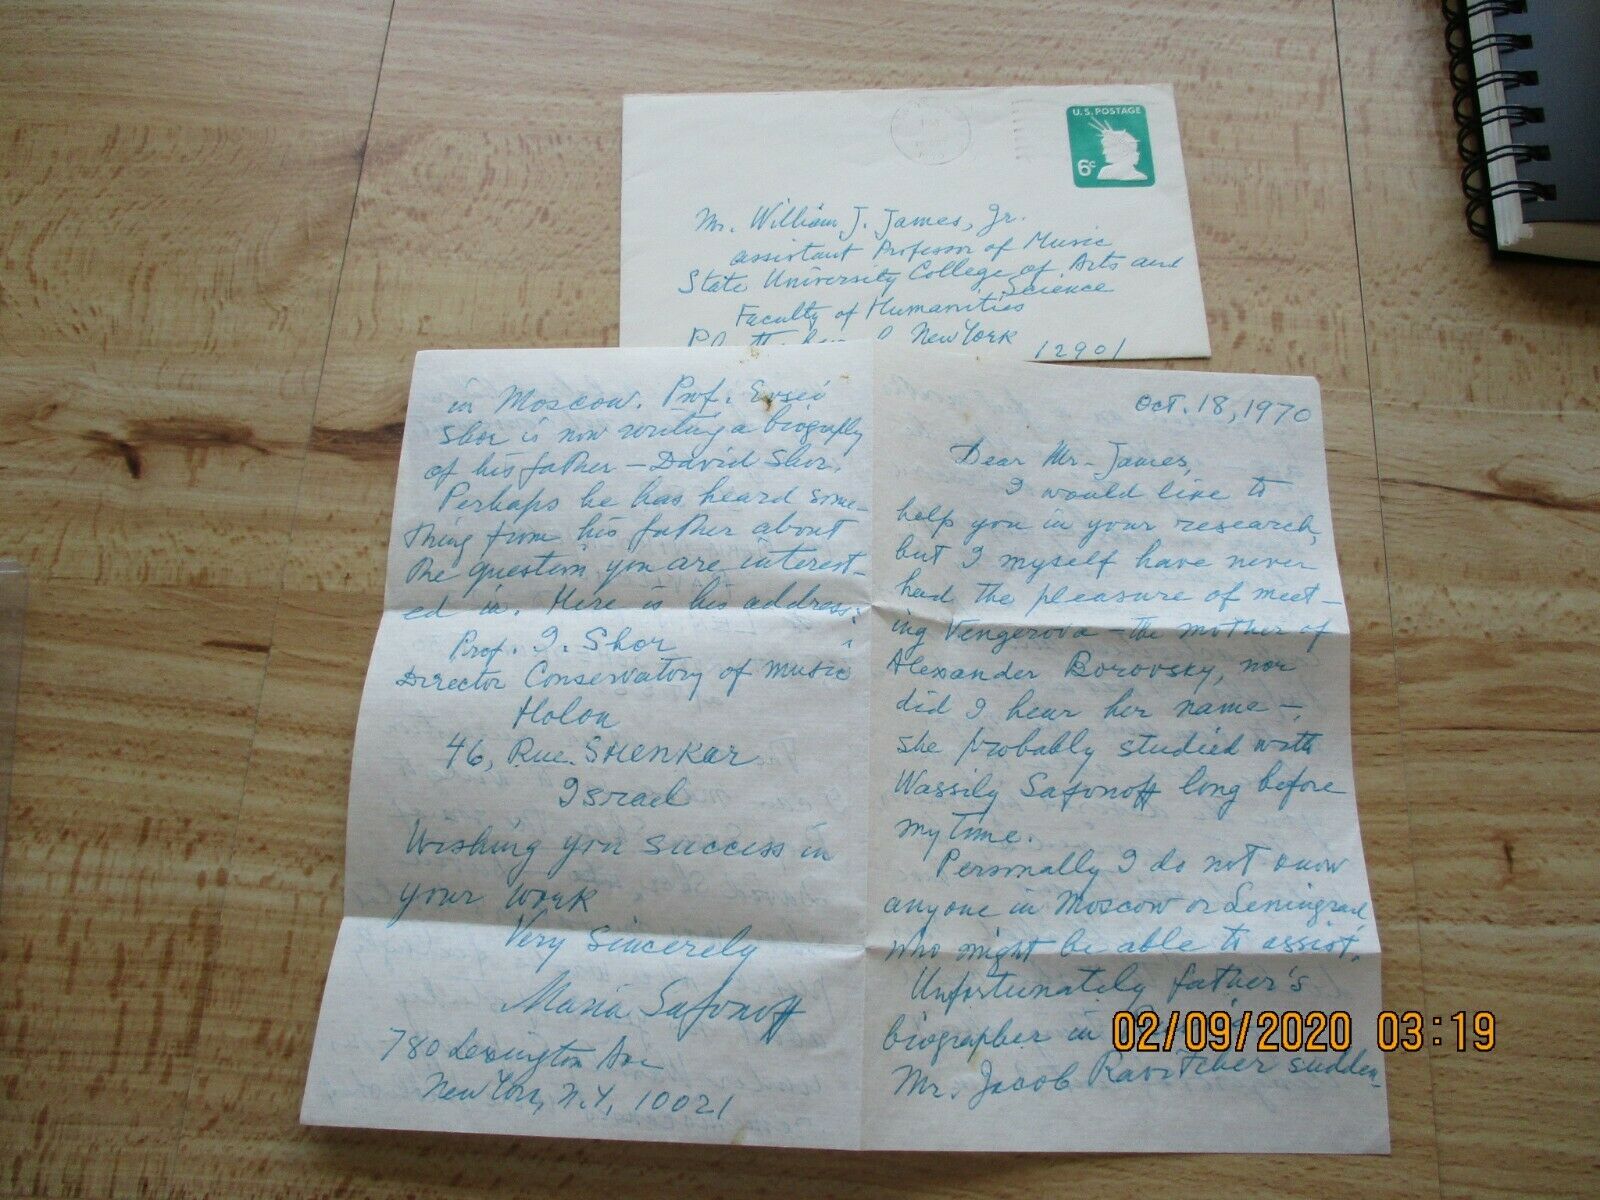 U.S. POSTAGE
6c
Mr. William J. James, Jr.
Assistant Professor of Music
State University College of Arts and
Science
Faculty of Humanities
New York 12901
Oct. 18, 1970
Dear Mr. James,
I would like to
help you in your research,
but I myself have never
had the pleasure of meet-
ing Vengerova – the mother of
Alexander Borovsky, nor
did I hear her name –
she probably studied with
Wassily Safonoff long before
my time.
Personally I do not know
anyone in Moscow or Leningrad
who might be able to assist.
Unfortunately father's
biographer in
Mr. Jacob Ravitcher sudden-
in Moscow. Prof. Evsei
Shor is now writing a biography
of his father – David Shor.
Perhaps he has heard some-
thing from his father about
the question you are interest-
ed in. Here is his address:
Prof. I. Shor
Director Conservatory of Music
Holon
46, Rue. Shenkar
Israel
Wishing you success in
your work
Very Sincerely
Maria Safonoff
780 Lexington Ave
New York, N.Y. 10021
02/09/2020 03:19